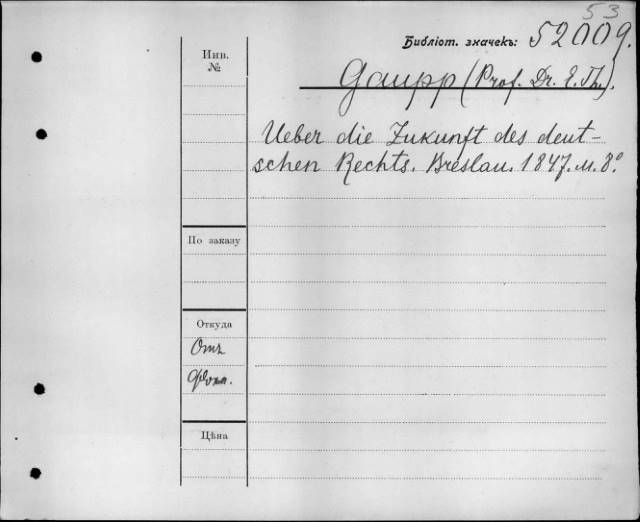 53
Библіот. значекъ: 52009.
Инв.
№
Gaupp (Prof. Dr. E. Th.).
Ueber die Zukunft des deut-
schen Rechts. Breslau. 1847. м. 8º
По заказу
Откуда
Отъ
Цѣна